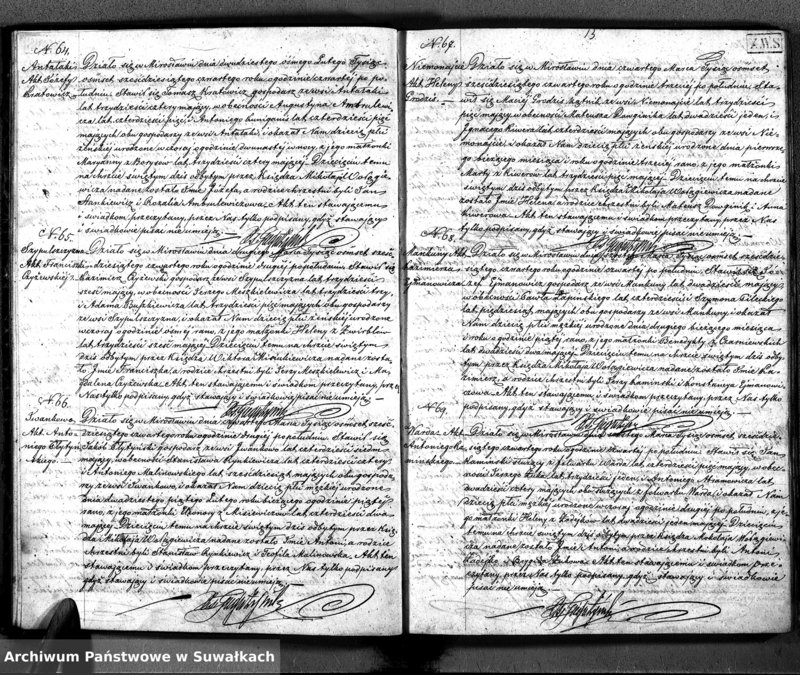 N. 64.
Antalaki Działo się w Mirosławiu dnia dwudziestego ósmego Lutego Tysiąc
Akt Józefy ośmset sześćdziesiątego czwartego roku o godzinie czwartej po po
Kratowicz łudniu. Stawił się Tomasz Kratowicz gospodarz ze wsi Antalaki
lat trzydzieści cztery mający, w obecności Augustyna
lat czterdzieści pięć i Antoniego lat czterdzieści pięć
mających, obu gospodarzy ze wsi Antalaki, i okazał Nam dziecię płci
żeńskiej urodzone wczoraj o godzinie dwunastej w nocy, z jego małżonki
Maryanny z Borysów lat trzydzieści cztery mającej. Dziecięciu temu
na chrzcie świętym dziś odbytym przez Księdza Mikołaja Wołągie
wicza nadane zostało Imię Józefa, a rodzicami chrzestnemi byli Jan
Stankiewicz i Rozalia Ambulewiczowa. Akt ten stawającemu
i świadkom przeczytany, przez Nas tylko podpisany, gdyż stawający
i świadkowie pisać nie umieją.
N. 65.
Szypulszczyzna Działo się w Mirosławiu dnia drugiego Marca Tysiąc ośmset sześć
Akt Franciszki dziesiątego czwartego roku o godzinie drugiej po południu. Stawił się
Kazimierz gospodarz ze wsi Szypulszczyzna lat trzydzieści
sześć mający, w obecności Jerzego Moszkielewicza lat trzydzieści
i Adama lat trzydzieści pięć mających obu gospodarzy
ze wsi Szypulszczyzna, i okazał Nam dziecię płci żeńskiej urodzone
wczoraj o godzinie ósmej rano, z jego małżonki Heleny z Zwirblów
lat trzydzieści sześć mającej. Dziecięciu temu na chrzcie świętym
dziś odbytym przez Księdza Wiktora nadane zosta
ło Imię Franciszka, a rodzicami chrzestnemi byli Jerzy Moszkielewicz i Ma
gdalena Akt ten stawającemu i świadkom przeczytany, przez
Nas tylko podpisany, gdyż stawający i świadkowie pisać nie umieją.
N. 66.
Iwankowo Działo się w Mirosławiu dnia czwartego Marca Tysiąc ośmset sześć
Akt Anto dziesiątego czwartego roku o godzinie drugiej po południu. Stawił się
niego Jakób gospodarz ze wsi Iwankowo lat czterdzieści siedm
mający, w obecności Stanisława Rynkiewicza lat czterdzieści cztery
i Antoniego Malinowskiego lat sześćdziesiąt mających, obu gospoda
rzy ze wsi Iwankowo, i okazał Nam dziecię płci męzkiej urodzone
dnia dwudziestego piątego Lutego roku bieżącego o godzinie piątej
rano, z jego małżonki z Misiewiczów lat czterdzieści dwa
mającej. Dziecięciu temu na chrzcie świętym dziś odbytym przez Księ
dza Mikołaja Wołągiewicza nadane zostało Imię Antoni, a rodzicami
chrzestnemi byli Stanisław Rynkiewicz i Teofila Malinowska. Akt ten
stawającemu i świadkom przeczytany, przez Nas tylko podpisany
gdyż stawający i świadkowie pisać nie umieją.
13
Z.W.S
N. 67.
Niemonajcie Działo się w Mirosławiu dnia czwartego Marca Tysiąc ośmset
Akt Heleny sześćdziesiątego czwartego roku o godzinie trzeciej po południu. Sta
Grodzis wił się Maciej Grodzis ze wsi Niemonajcie lat trzydzieści
pięć mający, w obecności Mateusza lat dwadzieścia jeden, i
Ignacego lat czterdzieści mających obu gospodarzy ze wsi Nie
monajcie i okazał Nam dziecię płci żeńskiej urodzone dnia pierwsze
go bieżącego miesiąca i roku o godzinie trzeciej rano, z jego małżonki
Marty z lat trzydzieści pięć mającej. Dziecięciu temu na chrzcie
świętym dziś odbytym przez Księdza Mikołaja Wołągiewicza nadane
zostało Imię Helena, a rodzicami chrzestnemi byli Mateusz i Anna
Akt ten stawającemu i świadkom przeczytany, przez Nas
tylko podpisany, gdyż stawający i świadkowie pisać nie umieją.
N. 68.
Mankuny Akt Działo się w Mirosławiu dnia Marca Tysiąc ośmset sześćdzie
Kazimierza siątego czwartego roku o godzinie czwartej po południu. Stawił się Józef
Zymanowicza Zymanowicz gospodarz ze wsi Mankuny lat dwadzieścia mający
w obecności Pawła Łapinskiego lat czterdzieści i Szymona
lat pięćdziesiąt mających obu gospodarzy ze wsi Mankuny, i okazał
Nam dziecię płci męzkiej urodzone dnia drugiego bieżącego miesiąca
i roku o godzinie piątej rano, z jego małżonki Benedykty z
lat dwadzieścia dwa mającej. Dziecięciu temu na chrzcie świętym dziś odby
tym przez Księdza Mikołaja Wołągiewicza nadane zostało Imię Ka
zimierz, a rodzicami chrzestnemi byli Jerzy Kaminski i Konstancya Zymano
wiczowa. Akt ten stawającemu i świadkom przeczytany, przez Nas tylko
podpisany, gdyż stawający i świadkowie pisać nie umieją.
N. 69.
Warda Akt Działo się w Mirosławiu dnia Marca Tysiąc ośmset sześćdzie
Antoniego Ka siątego czwartego roku o godzinie czwartej po południu. Stawił się Jan
minskiego Kaminski służący z folwarku Warda lat czterdzieści pięć mający, w obec
ności Jerzego lat trzydzieści jeden, i Antoniego Abramowicza lat
dwadzieścia cztery mających, obu służących z folwarku Warda i okazał Nam
dziecię płci męzkiej urodzone wczoraj o godzinie drugiej po południu, z je
go małżonki Heleny z lat dwadzieścia jeden mającej. Dziecięciu
temu na chrzcie świętym dziś odbytym przez Księdza Mikołaja Wołągie
wicza nadane zostało Imię Antoni, a rodzicami chrzestnemi byli Antoni
Akt ten stawającemu i świadkom prze
czytany, przez Nas tylko podpisany, gdyż stawający i świadkowie
pisać nie umieją.
Archiwum Państwowe w Suwałkach